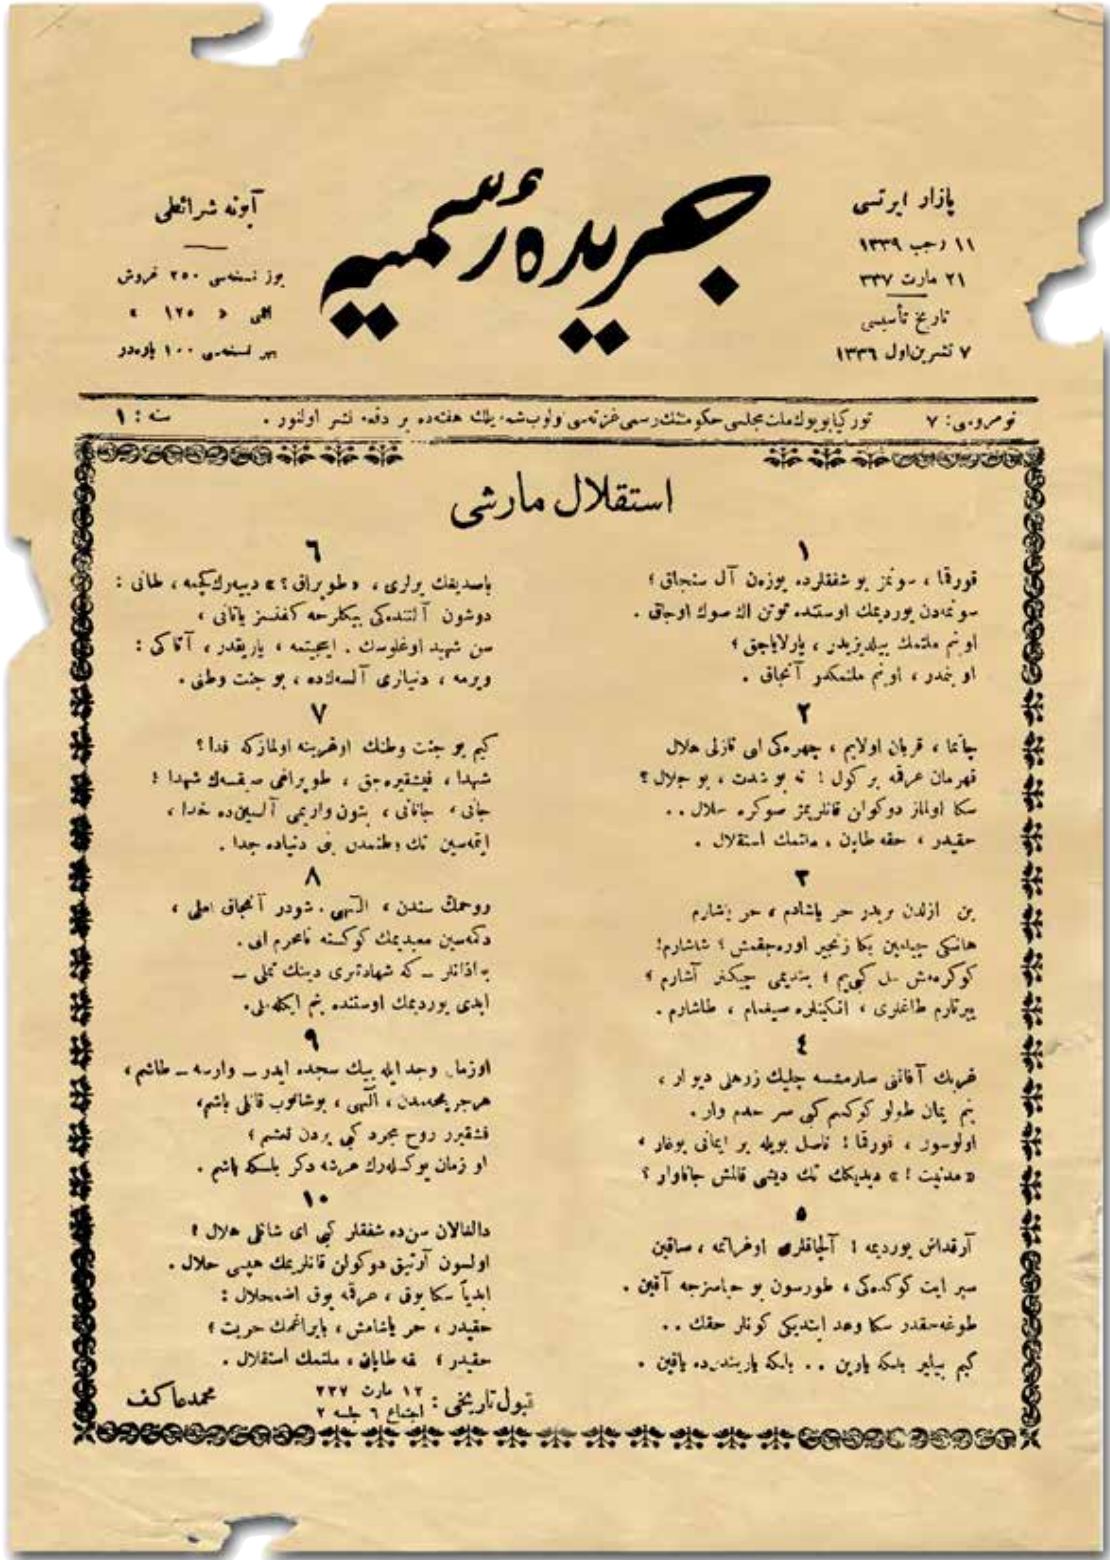 جریدهٔ رسمیه
پازار ایرتسی
۱۱ رجب ۱۳۳۹
۲۱ مارت ۳۳۷
تاریخ تأسیسی
۷ تشرین‌اول ۱۳۳٦
آبونه شرائطی
یوز نسخه‌سی ۲۵۰ غروش
اللی « ۱۲۵ »
بهر نسخه‌سی ۱۰۰ پاره‌در
نومروسی: ۷
تورکیا بویوك ملت مجلسی حکومتنك رسمی غزته‌سی اولوب شمدیلك هفته‌ده بر دفعه نشر اولنور .
سنه : ۱
استقلال مارشی
۱
قورقما ، سونمز بو شفقلرده یوزەن آل سنجاق ؛
سونمەدن یوردیمك اوستنده توتن اك صوك اوجاق .
او بنم ملتمك ییلدیزیدر ، پارلایاجق ؛
او بنمدر ، او بنم ملتمكدر آنجاق .
۲
چاتما ، قربان اولایم ، چهره‌كی ای نازلی هلال
قهرمان عرقمه بر كول ! نه بو شدت ، بو جلال ؟
سكا اولماز دوكولن قانلریمز صوكره حلال . .
حقیدر ، حقه طاپان ، ملتمك استقلال .
۳
بن ازلدن بریدر حر یاشادم ، حر یاشارم
هانكی چیلغین بكا زنجیر اوره‌جقمش ؟ شاشارم!
كوكره‌مش سل كبی‌یم ؛ بندیمی چیكنر آشارم ؛
ییرتارم طاغلری ، انكینلره صیغمام ، طاشارم .
٤
غربك آفاقنی صارمشسه چلیك زرهلی دیوار ،
بنم ایمان طولو كوكسم كبی سر حدم وار .
اولوسون ، قورقما ! ناصل بویله بر ایمانی بوغار ،
« مدنیت ! » دیدیكك تك دیشی قالمش جاناوار ؟
۵
آرقداش یوردیمه ! آلچاقلری اوغراتمه ، ساقین
سپر ایت كوكده‌كی ، طورسون بو حیاسزجه آقین .
طوغه‌جقدر سكا وعد ایتدیكی كونلر حقك . .
كیم بیلیر بلكه یارین . . بلكه یاریندن‌ده یاقین .
٦
باصدیغك یرلری ، « طوپراق ؟ » دییەرك كچمه ، طانی :
دوشون آلتنده‌كی بیكلرجه كفنسز یاتانی ،
سن شهید اوغلوسك . اینجیتمه ، یازیقدر ، آتاكی :
ویرمه ، دنیالری آلسه‌ك‌ده ، بو جنت وطنی .
۷
كیم بو جنت وطنك اوغرینه اولمازكه فدا ؟
شهدا ، فیشقیره‌جق ، طوپراغی صیقسه‌ك شهدا !
جانی ، جانانی ، بتون واریمی آلسین‌ده خدا ،
ایتمه‌سین تك وطنمدن بنی دنیاده جدا .
۸
روحمك سندن ، الٓهی . شودر آنجاق املی ،
دكمه‌سین معبدیمك كوكسنه نامحرم الی .
بو اذانلر ــ كه شهادتلری دینك تملی ــ
ابدی یوردیمك اوستنده بنم ایكله‌ملی.
۹
او زمان وجد ایله بیك سجده ایدر ــ وارسه ــ طاشم ،
هر جریحه‌مدن ، الٓهی ، بوشانوب قانلی یاشم،
فشقیرر روح مجرد كبی یردن نعشم ؛
او زمان یوكسله‌رك عرشه دكر بلكه باشم .
۱۰
دالغالان سن‌ده شفقلر كبی ای شانلی هلال !
اولسون آرتیق دوكولن قانلریمك هپسی حلال .
ابدیاً سكا یوق ، عرقمه یوق اضمحلال :
حقیدر ، حر یاشامش ، بایراغمك حریت ؛
حقیدر ؛ حقه طاپان ، ملتمك استقلال .
قبول تاریخی : ۱۲ مارت ۳۳۷
اجتماع ٦ جلسه ۲
محمد عاكف